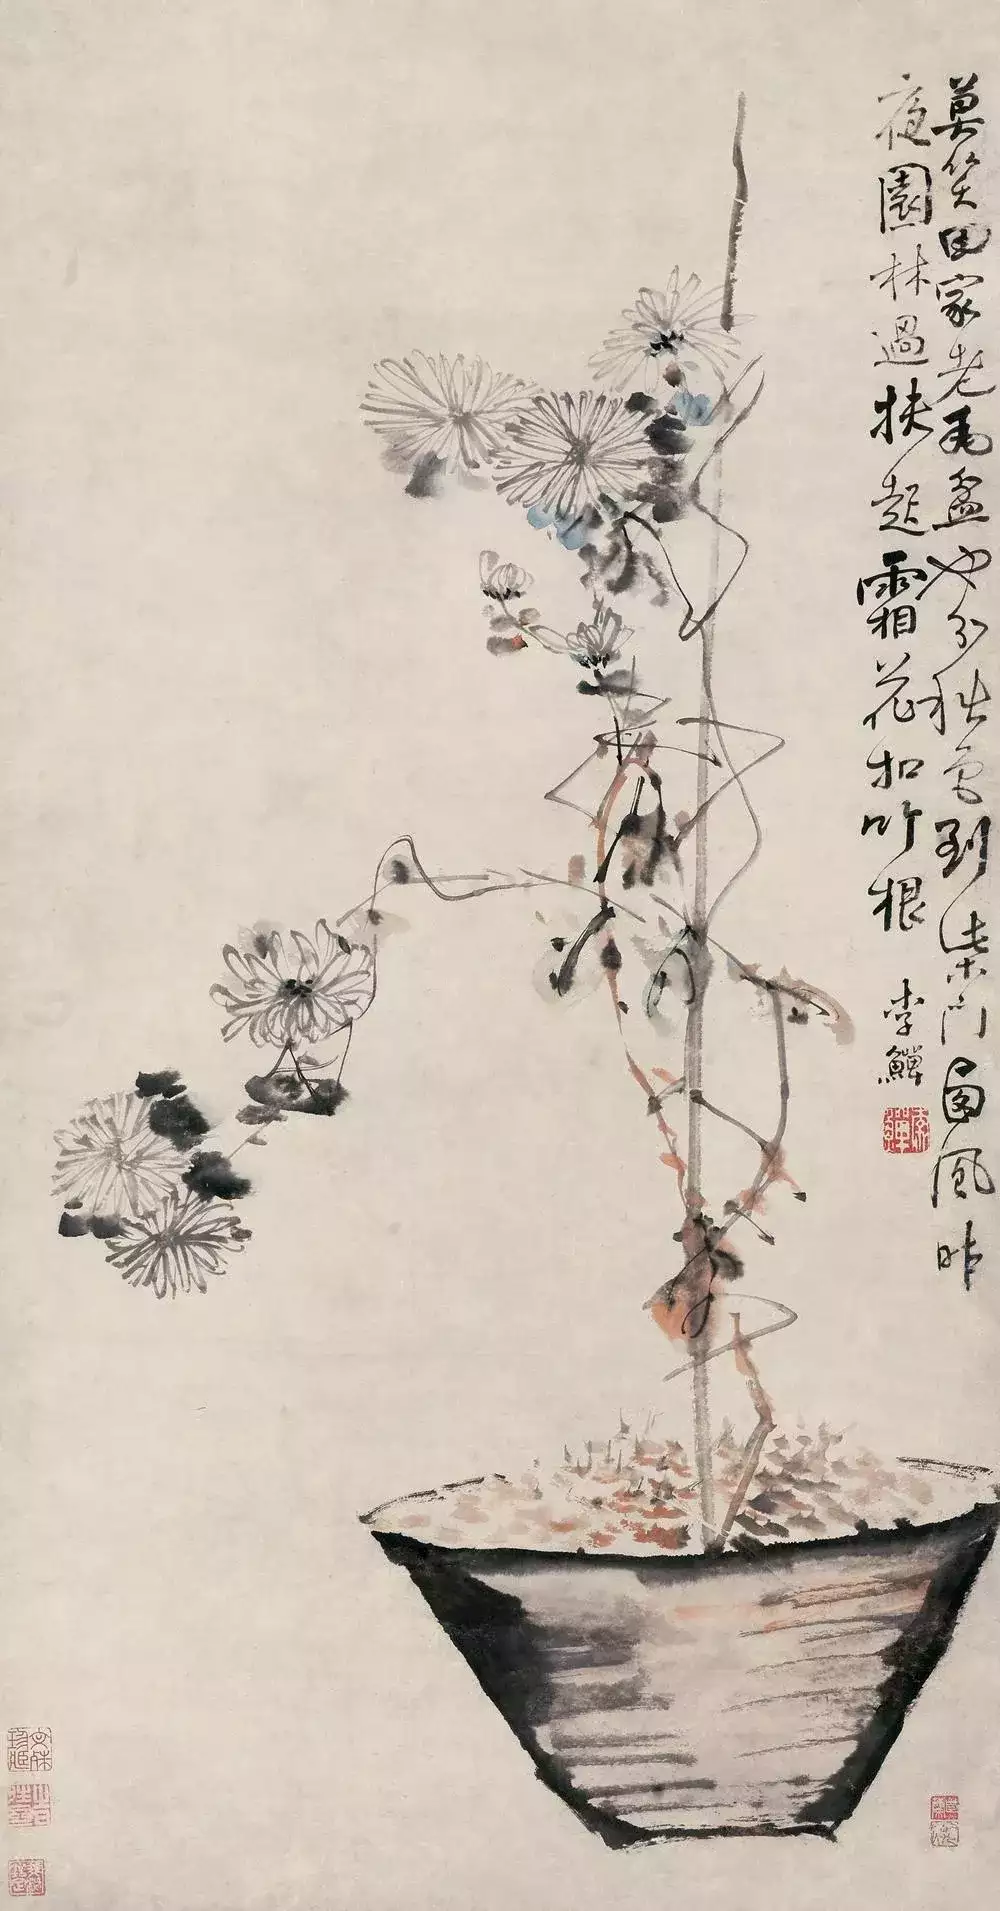 莫笑田家老瓦盆也分秋色到柴門西風昨
夜園林過扶起霜花扣竹根
李鱓